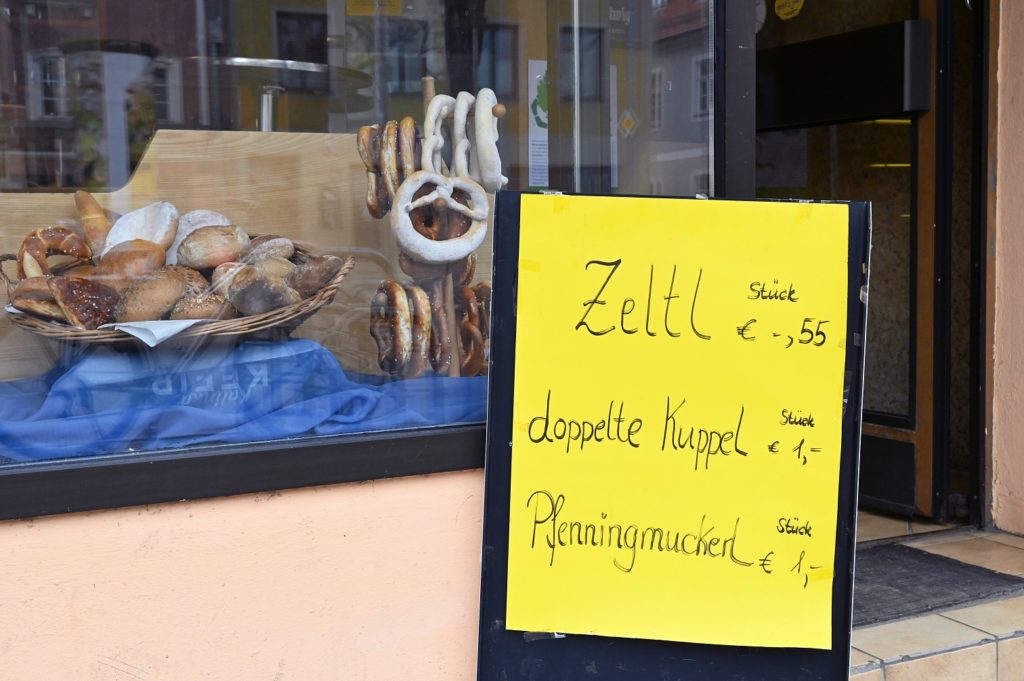 Zeltl Stück
€ -,55
doppelte Kuppel Stück
€ 1,-
Pfenningmuckerl Stück
€ 1,-